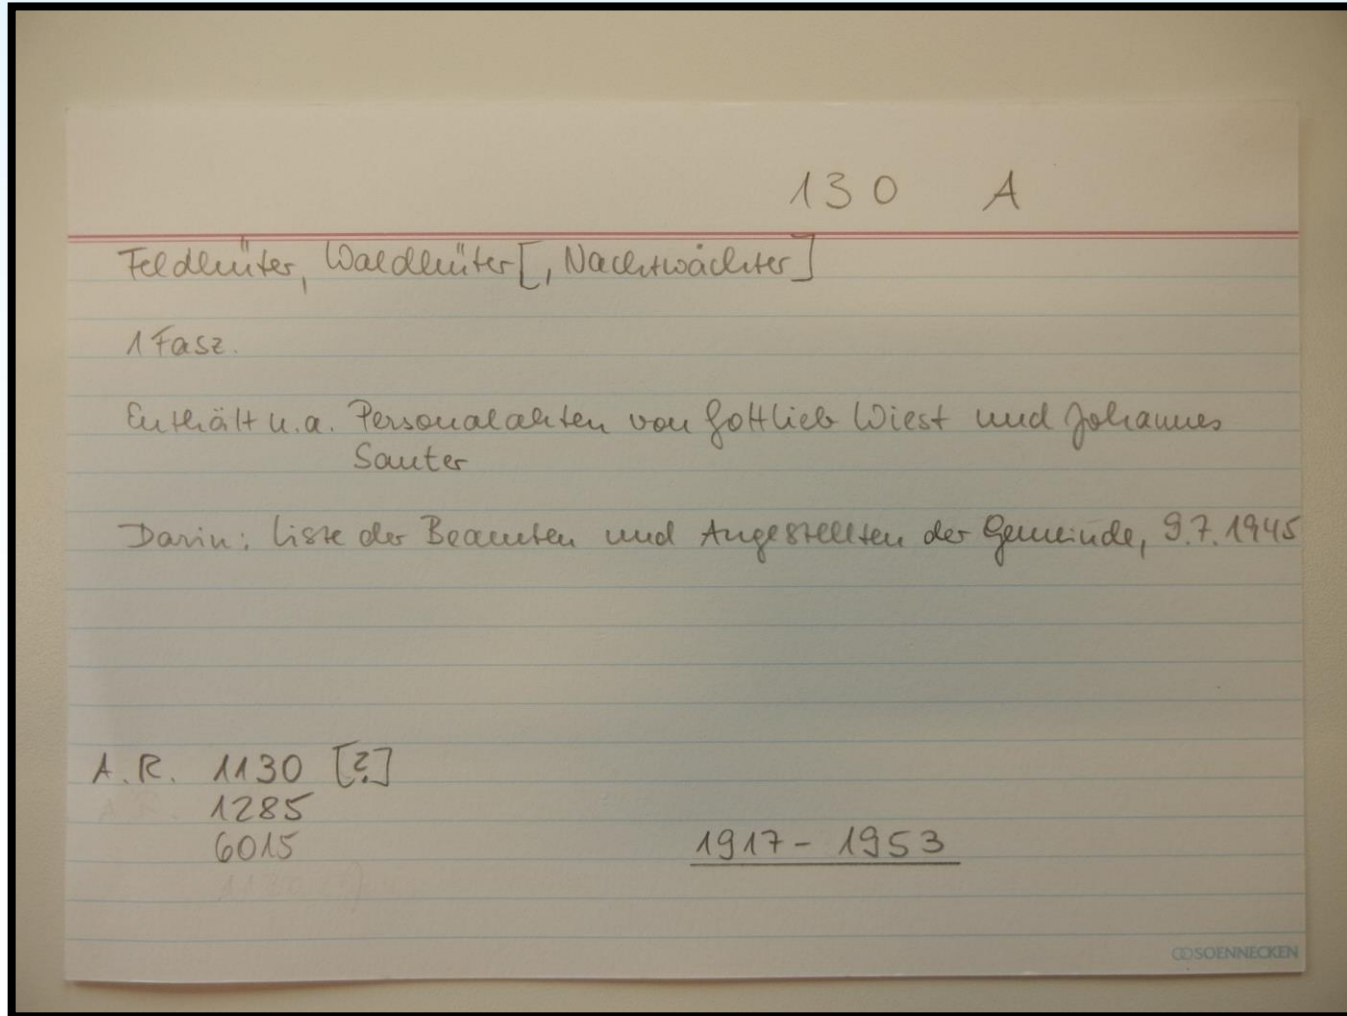 130 A
Feldhüter, Waldhüter [, Nachtwächter]
1 Fasz.
Enthält u.a. Personalakten von Gottlieb Wiest und Johannes
Sauter
Darin: Liste der Beamten und Angestellten der Gemeinde, 9.7.1945
A.R. 1130 [?]
1285
6015
1917 - 1953
SOENNECKEN